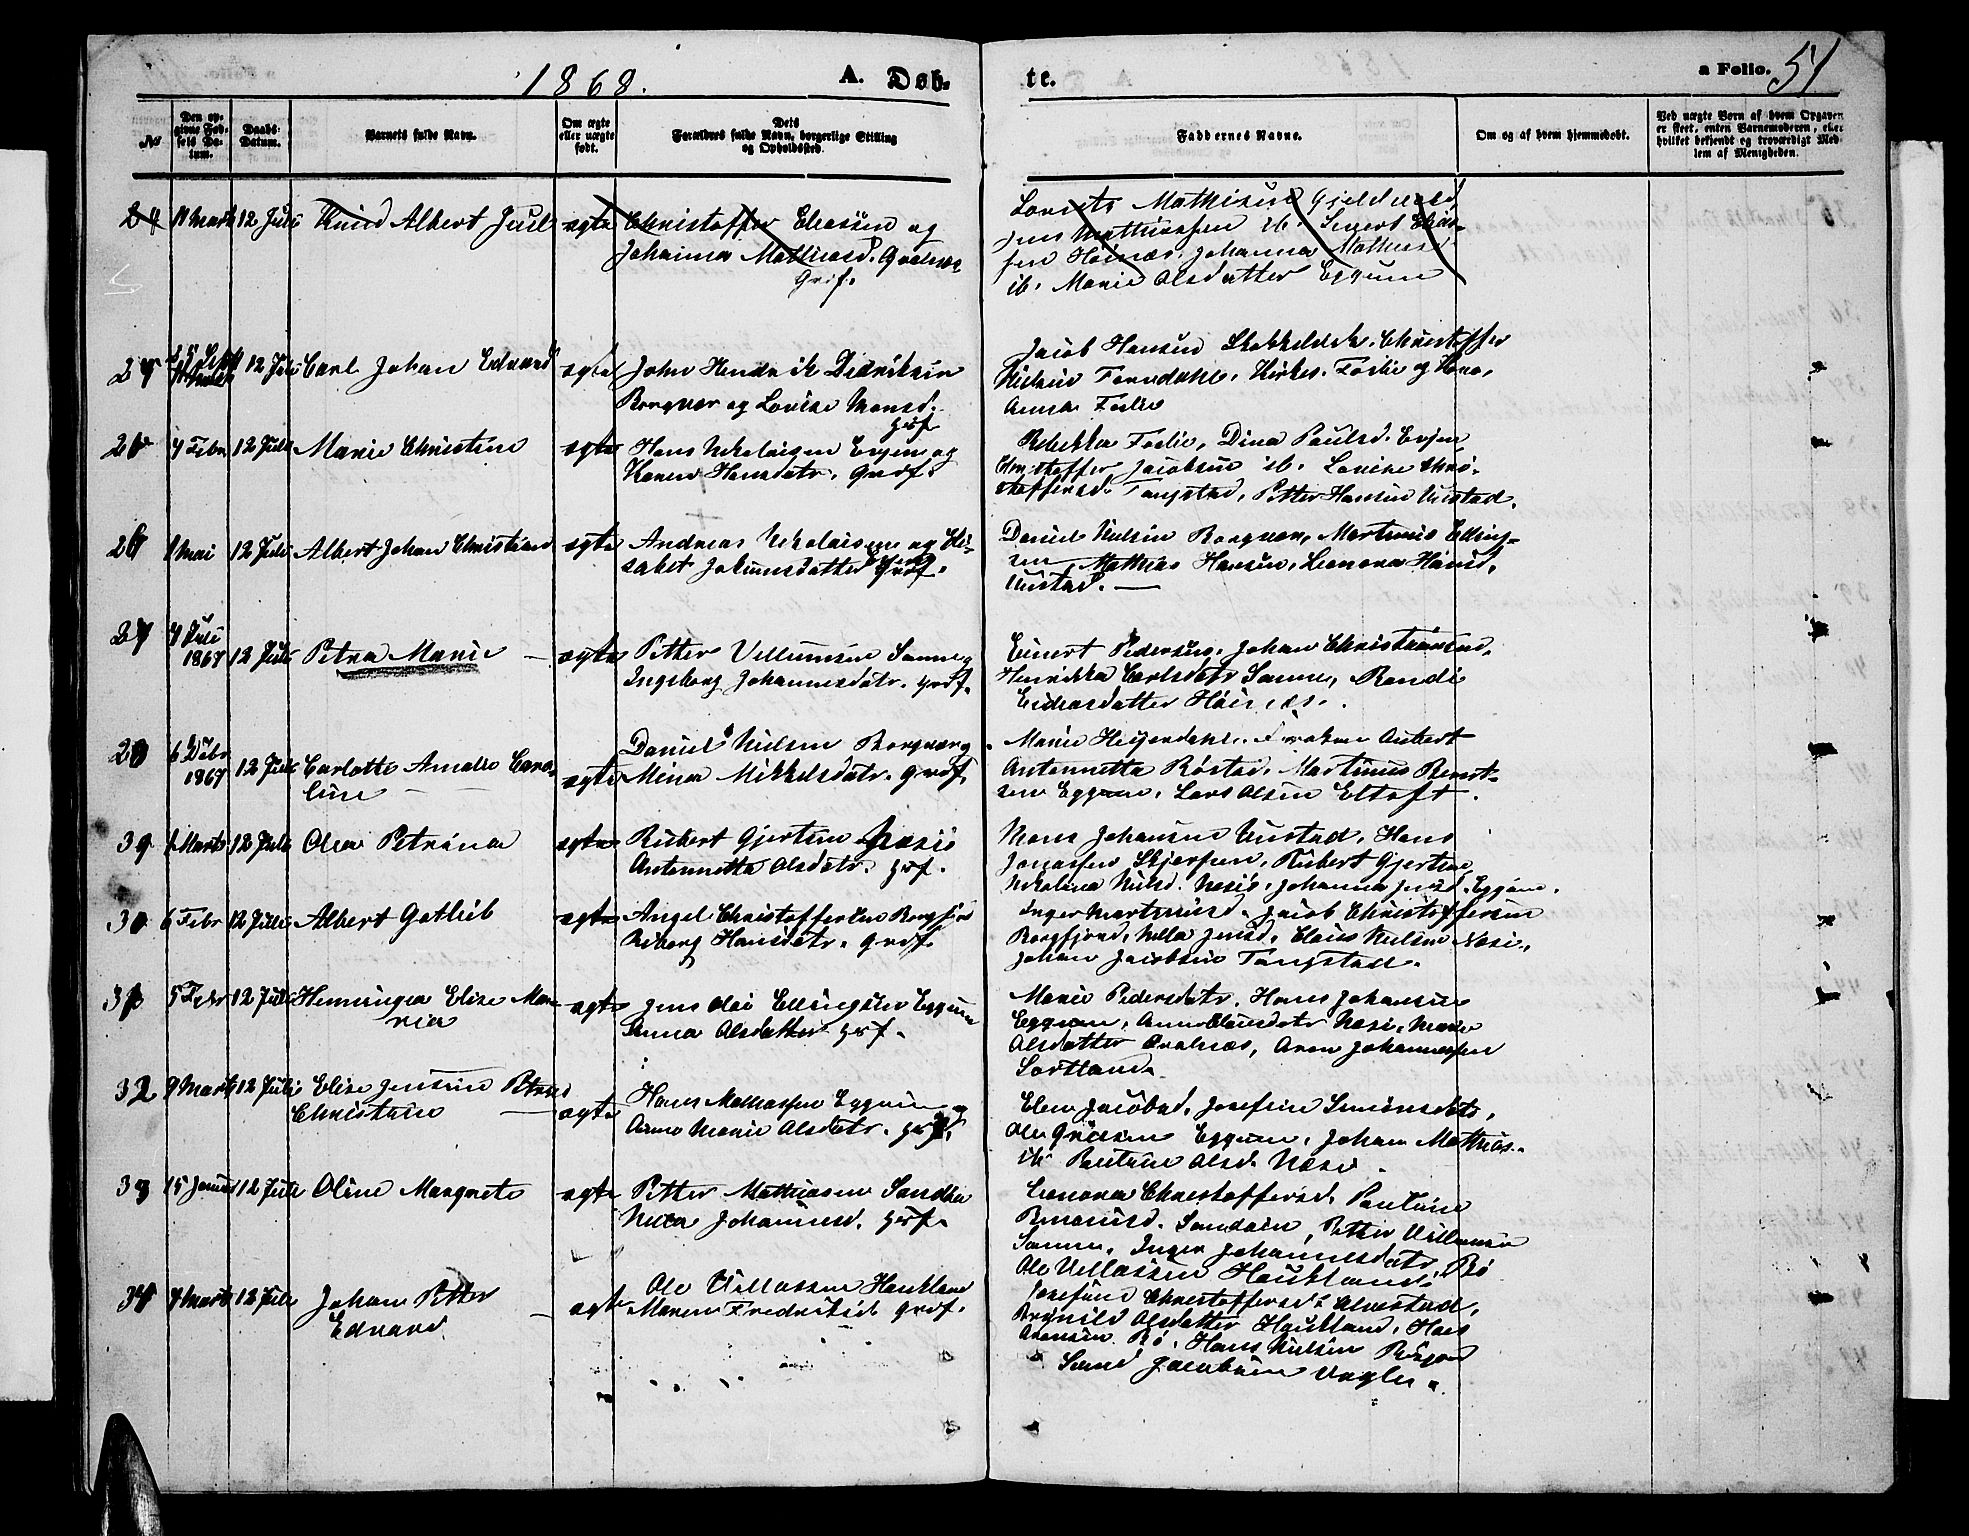 1868. A. Døb-
te. a Folio. 51
No
Den opgivne Fødsels Datum.
Daabs-Datum.
Barnets fulde Navn.
Om ægte eller uægte født.
Dets Forældres fulde Navn, borgerlige Stilling og Opholdssted.
Faddernes Navne.
Om og af hvem hjemmedøbt.
Ved uægte Børn af hvem Opgaven er skeet, enten Barnemoderen, eller hvilket bekjendt og troværdigt Medlem af Menigheden.
24 11 Marts 12 Juli Knud Albert Juul ægte Christoffer Eliesen og
Johanna Mathiasd. Qvalnæs
Grdf.
Lorents Mathisen Gjeldvold,
Jens Mathiassen ib. Sivert Elias-
sen Høinæs, Johanna Mathiasd
ib. Marie Olsdatter Eggum
24 12 Juli Carl Johan Edvard ægte John Hendrik Didriksen
Borgvær og Lovise Monsd.
grdf
Jacob Hansen Christoffer
Nielsen Farmdahl, Kirkes. Foslie og Kone,
Anna Foslie
26 4 Febr 12 Juli Marie Christine ægte Hans Nikolaisen Evjen og
Karen Hansdatr. Grdf.
Rebekka Foslie, Dina Paulsd. Evjen
Christoffer Jacobsen ib. Lovise Chri-
stoffersd. Tangstad, Petter Hansen Uustad.
26 1 Mai 12 Juli Albert Johan Christian ægte Andreas Nikolaisen og Eli-
sabet Johannsdatter Grdf.
Daniel Nielsen Borgvær, Martinus Elling-
sen, Mathias Hansen, Leonora Hansd,
Uustad.
27 4 Juli
1867 12 Juli Petra Marie ægte Petter Villumsen Sanne og
Ingeborg Johannesdatr. grdf.
Einert Pedersen, Johan Christiansen,
Henrikka Carlsdatr Sanne, Randi
Endresdatter Høinæs.
28 6 Debr
1867 12 Juli Carlotte Amalie Caro-
line ægte Daniel Nielsen Borgvær og
Mina Mikkelsdatr. Grdf.
Marie Heyerdahl. Frøken Aubert
Antonnetta Røstad. Martinus Bernt-
sen Eggum, Lars Olsen Eltoft.
39 1 Marts 12 Juli Olea Petrina ægte Rubert Gjertsen Næsie
Antonnetta Olsdatr. grdf.
Mons Johansen Uustad, Hans
Jonassen Skjerpen, Rubert Gjertsen
Nikolina Nielsd. Næsie, Johanna Jensd. Eggum.
30 6 Febr 12 Juli Albert Gotlieb ægte Angel Christoffersen Borgfjord
Reborg Hansdatr. Grdf.
Inger Martinusd. Jacob Christoffersen
Borgfjord, Nilla Jensd, Claus Nielsen Næsi,
Johan Jacobsen Tangstad.
31 5 Febr 12 Juli Henningea Elise Ma-
ria ægte Jens Olai Ellingsen Eggum
Anna Olsdatter grdf.
Marie Pedersdatr. Hans Johansen
Eggum, Anne Clausdatr Næsi, Marie
Olsdatter Qvalnæs, Aron Johannessen
Sortland.
32 9 Marts 12 Juli Elise Jensine Petra
Christine ægte Hans Mathiassen Eggum og
Anne Marie Olsdatr. grdf.
Elen Jacobsd, Josefine Simonsdatr,
Ole Eggum, Johan Mathias.
ib Bentine Olsd Næsi.
33 15 Januar 12 Juli Oline Margrete ægte Petter Mathiasen Sandøen
Nilla Johannesd. grdf.
Leonora Christoffersd. Pauline
Rasmusd. Sandøen, Petter Villumsen
Sanne, Inger Johannesdatr
34 4 Marts 12 Juli Johan Petter
Edvard ægte Ole Villassen Haukland
Maren Fredriksd. grdf.
Ole Villassen Haukland, Bø
Josefine Christoffersd. Alvestad,
Brynild Olsdatter Haukland, Hans
Bø, Hans Nielsen
Sand Jacobsen Vagle.